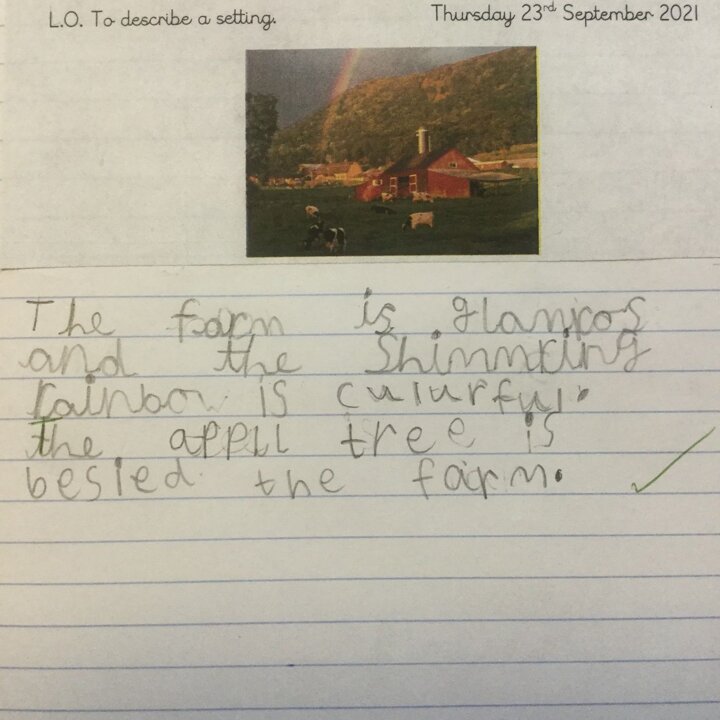 L.O. To describe a setting.
Thursday 23rd September 2021
The farm is glanros
and the Shimmring
rainbow is culurful.
The appll tree is
besied the farm.